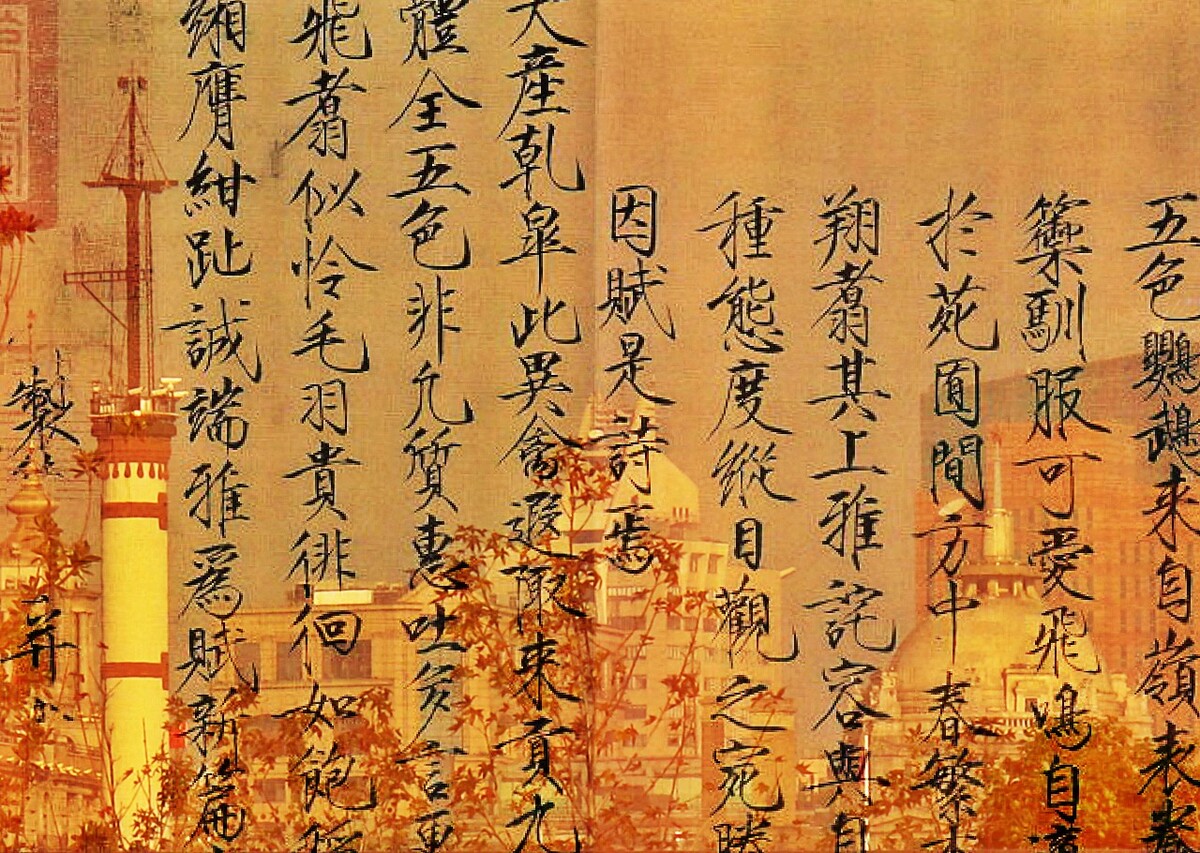 五色鸚鵡来自嶺表
籞馴服可愛飛鳴自
於苑囿間方中春繁
翔翥其上雅詫容與自
種態度縱目觀之宛勝
因賦是詩焉
天産乾皐此異禽遐陬来貢九
體全五色非凡質惠吐多言更
飛翥似憐毛羽貴徘徊如飽
緗膺紺趾誠端雅爲賦新篇
製并